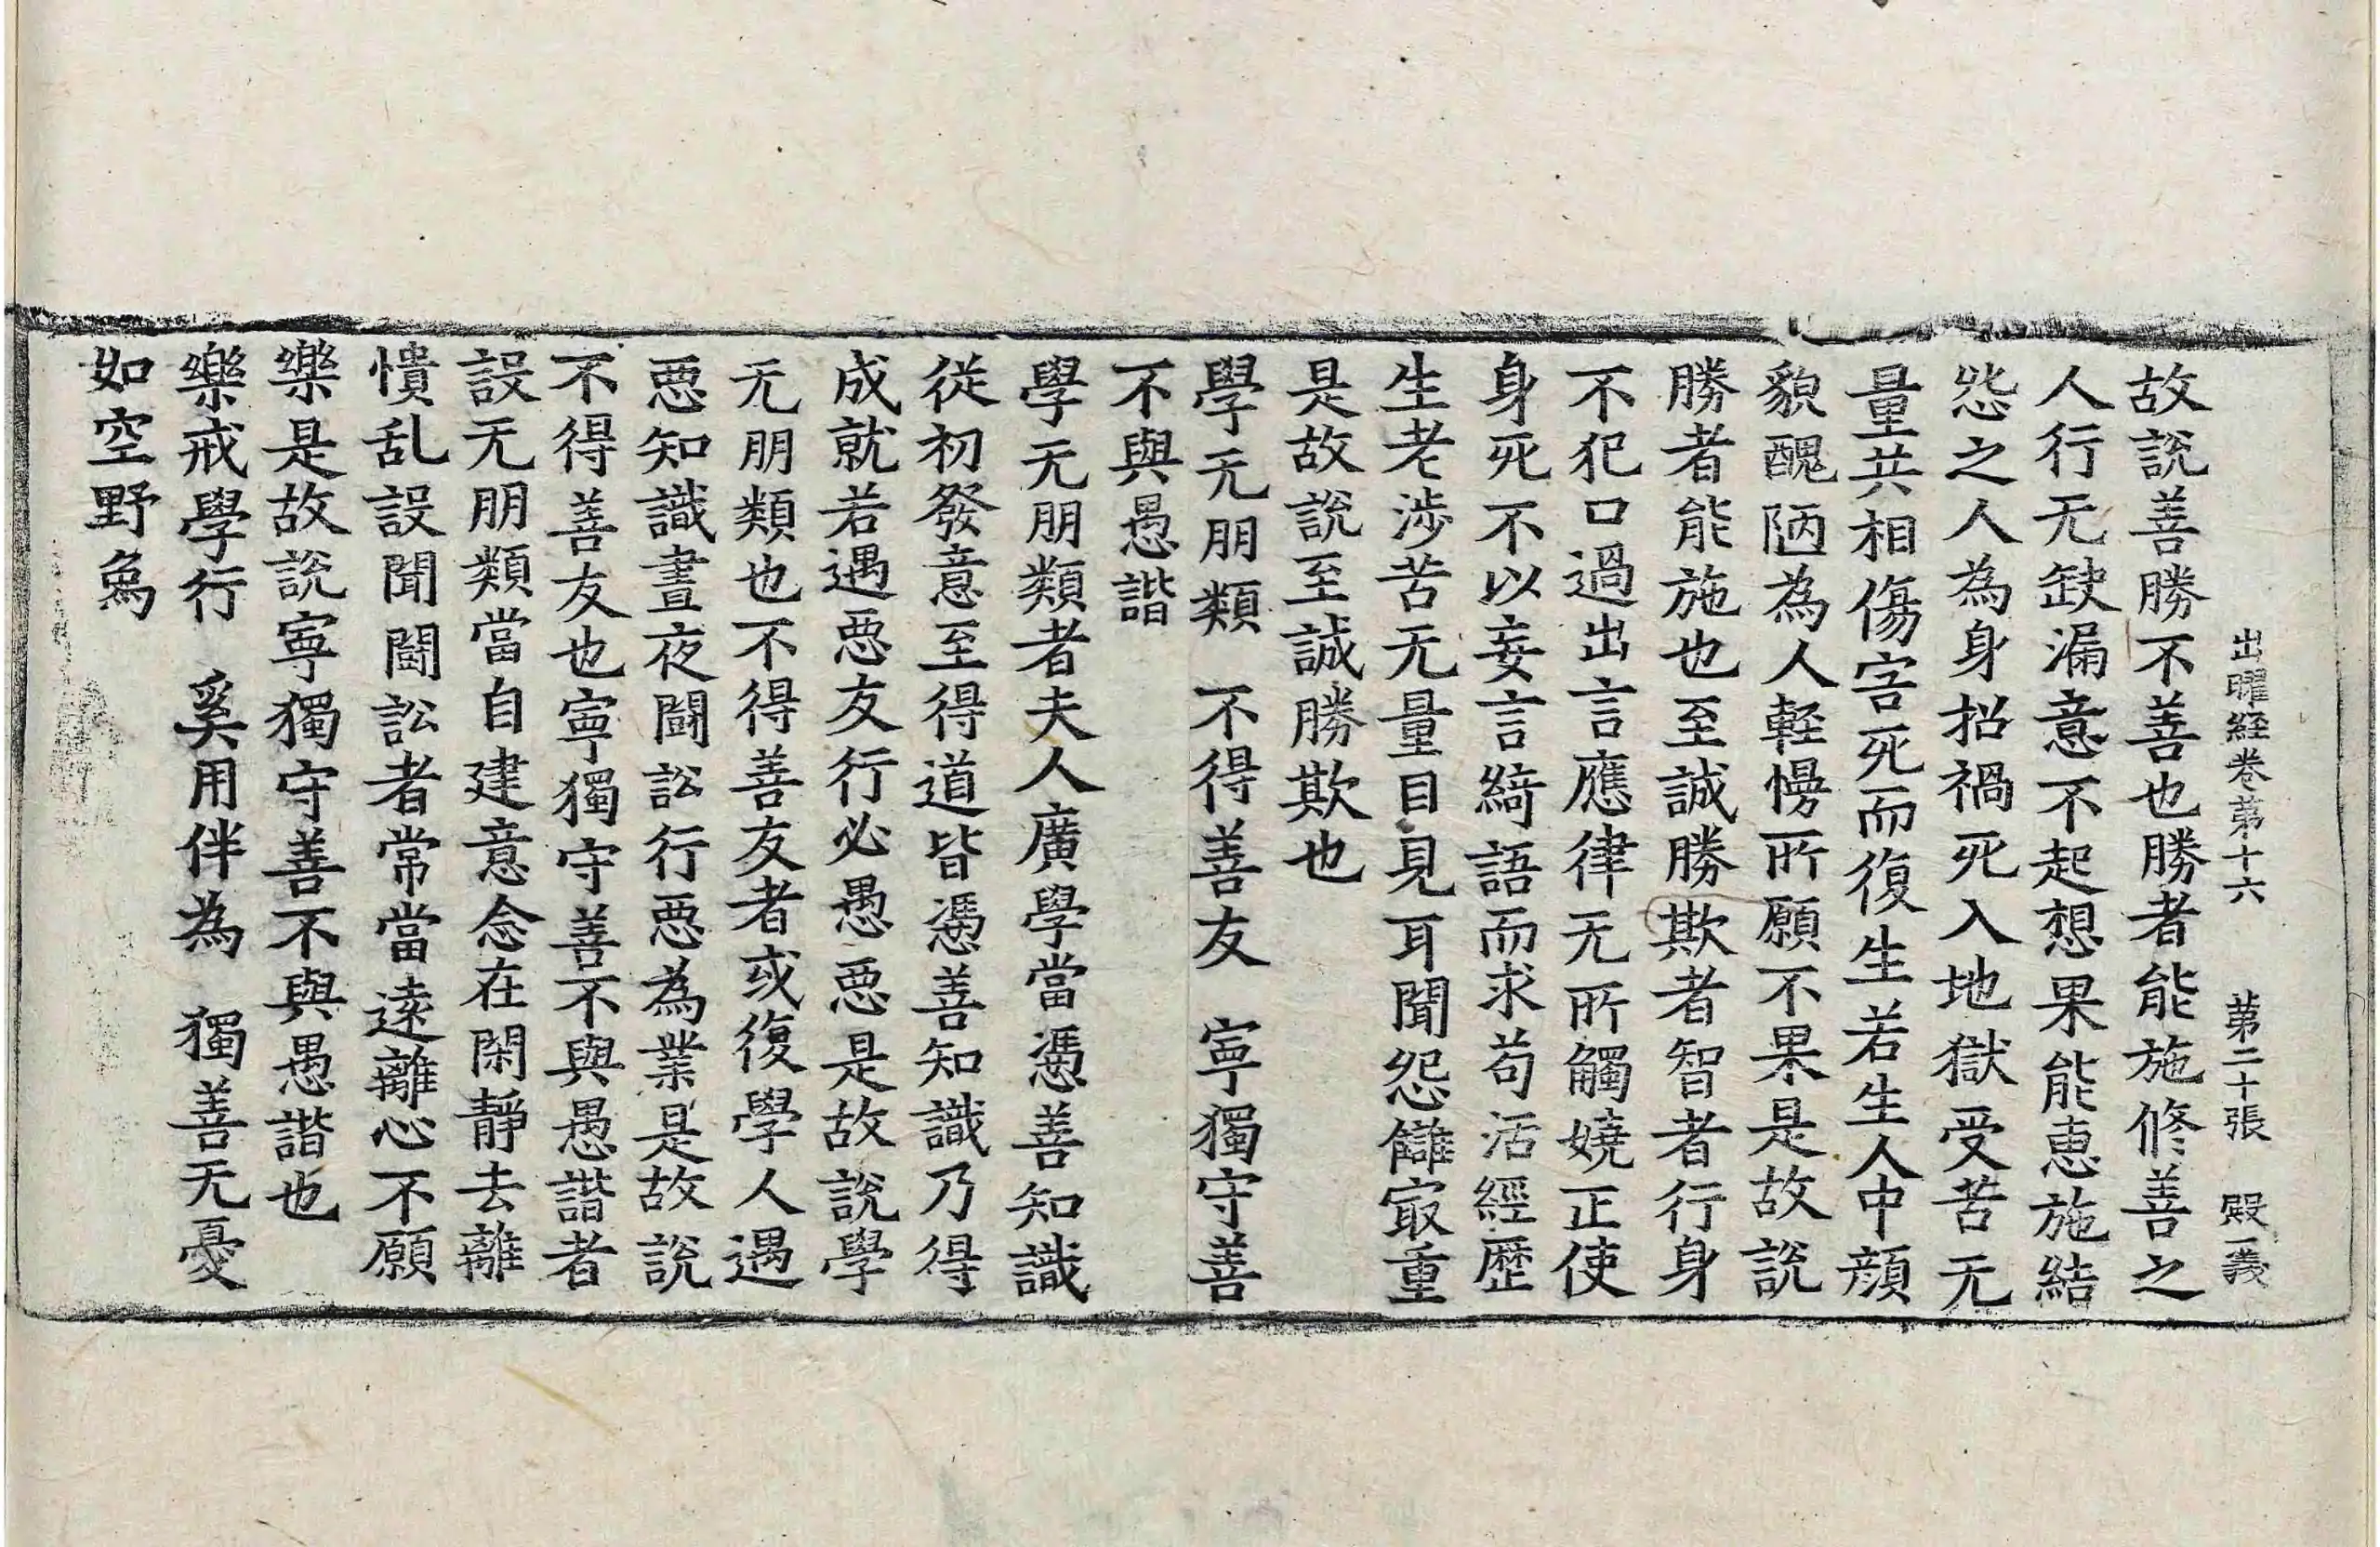 出曜経卷苐十六 苐二十張 殿 一義
故說善勝不善也勝者能施修善之
人行无缺漏意不起想果能恵施結
㤪之人為身招禍死入地獄受苦无
量共相傷害死而復生若生人中顔
貌醜陋為人軽慢所願不果是故說
勝者能施也至誠勝欺者智者行身
不犯口過出言應律无所觸嬈正使
身死不以妄言綺語而求苟活經歷
生老涉苦无量目見耳聞怨讎冣重
是故說至誠勝欺也
學无朋類 不得善友 寧獨守善
不與愚諧
學无朋類者夫人廣學當憑善知識
從初發意至得道皆憑善知識乃得
成就若遇惡友行必愚惡是故說學
无朋類也不得善友者或復學人遇
惡知識晝夜鬪訟行惡為業是故說
不得善友也寧獨守善不與愚諧者
設无朋類當自建意念在閑靜去離
憒乱設聞鬪訟者常當遠離心不願
樂是故說寧獨守善不與愚諧也
樂戒學行 奚用伴為 獨善无憂
如空野象